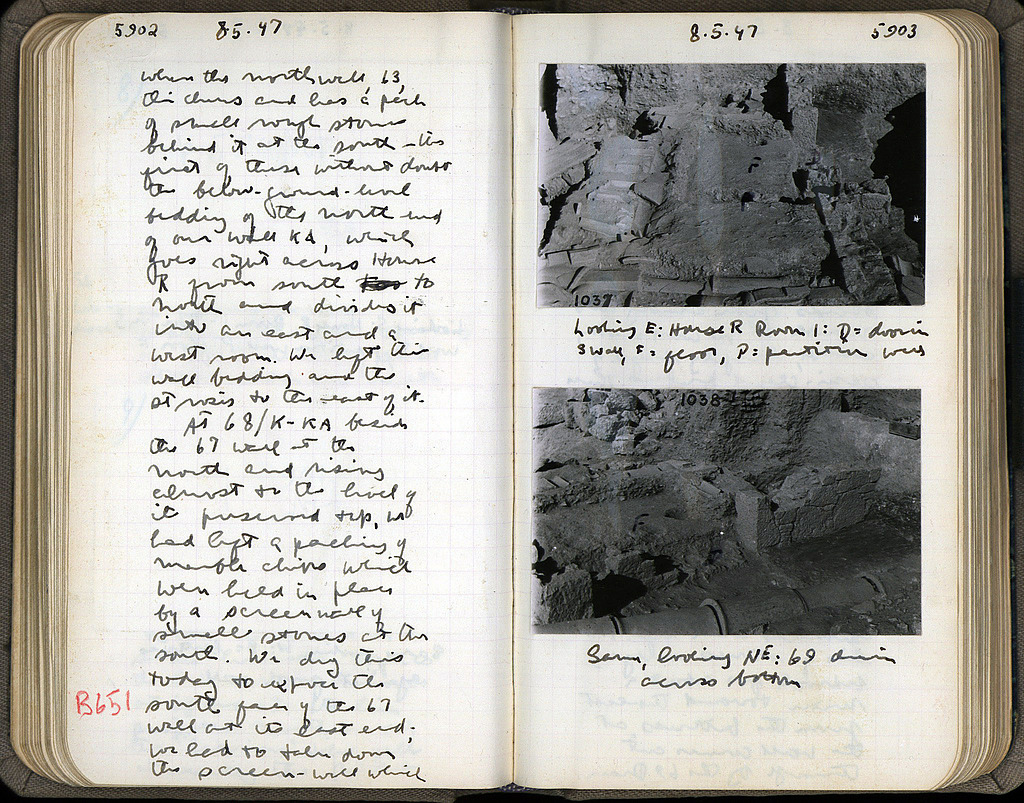 5902 8.5.47
when the north wall, 63,
thi and has a pack
of small rough stones
behind it at the south – the
first of these without doubt
the below-ground-level
bedding of the north end
of our wall KA, which
goes right across House
R from south to
north and divides it
into an east and a
west room. We left this
wall bedding and the
strosis to the east of it.
At 68/K-KA beside
the 67 wall at the
north and rising
almost to the level of
its preserved top, we
had left a packing of
marble chips which
were held in place
by a screen wall of
small stones at the
south. We dug this
today to expose the
B651
south face of the 67
wall at its east end;
we had to take down
the screen-wall which
8.5.47 5903
1037
Looking E: House R Room 1: D = door in
S wall, F = floor, P = partition wall
1038
Same, looking NE: 69 drain
across bottom